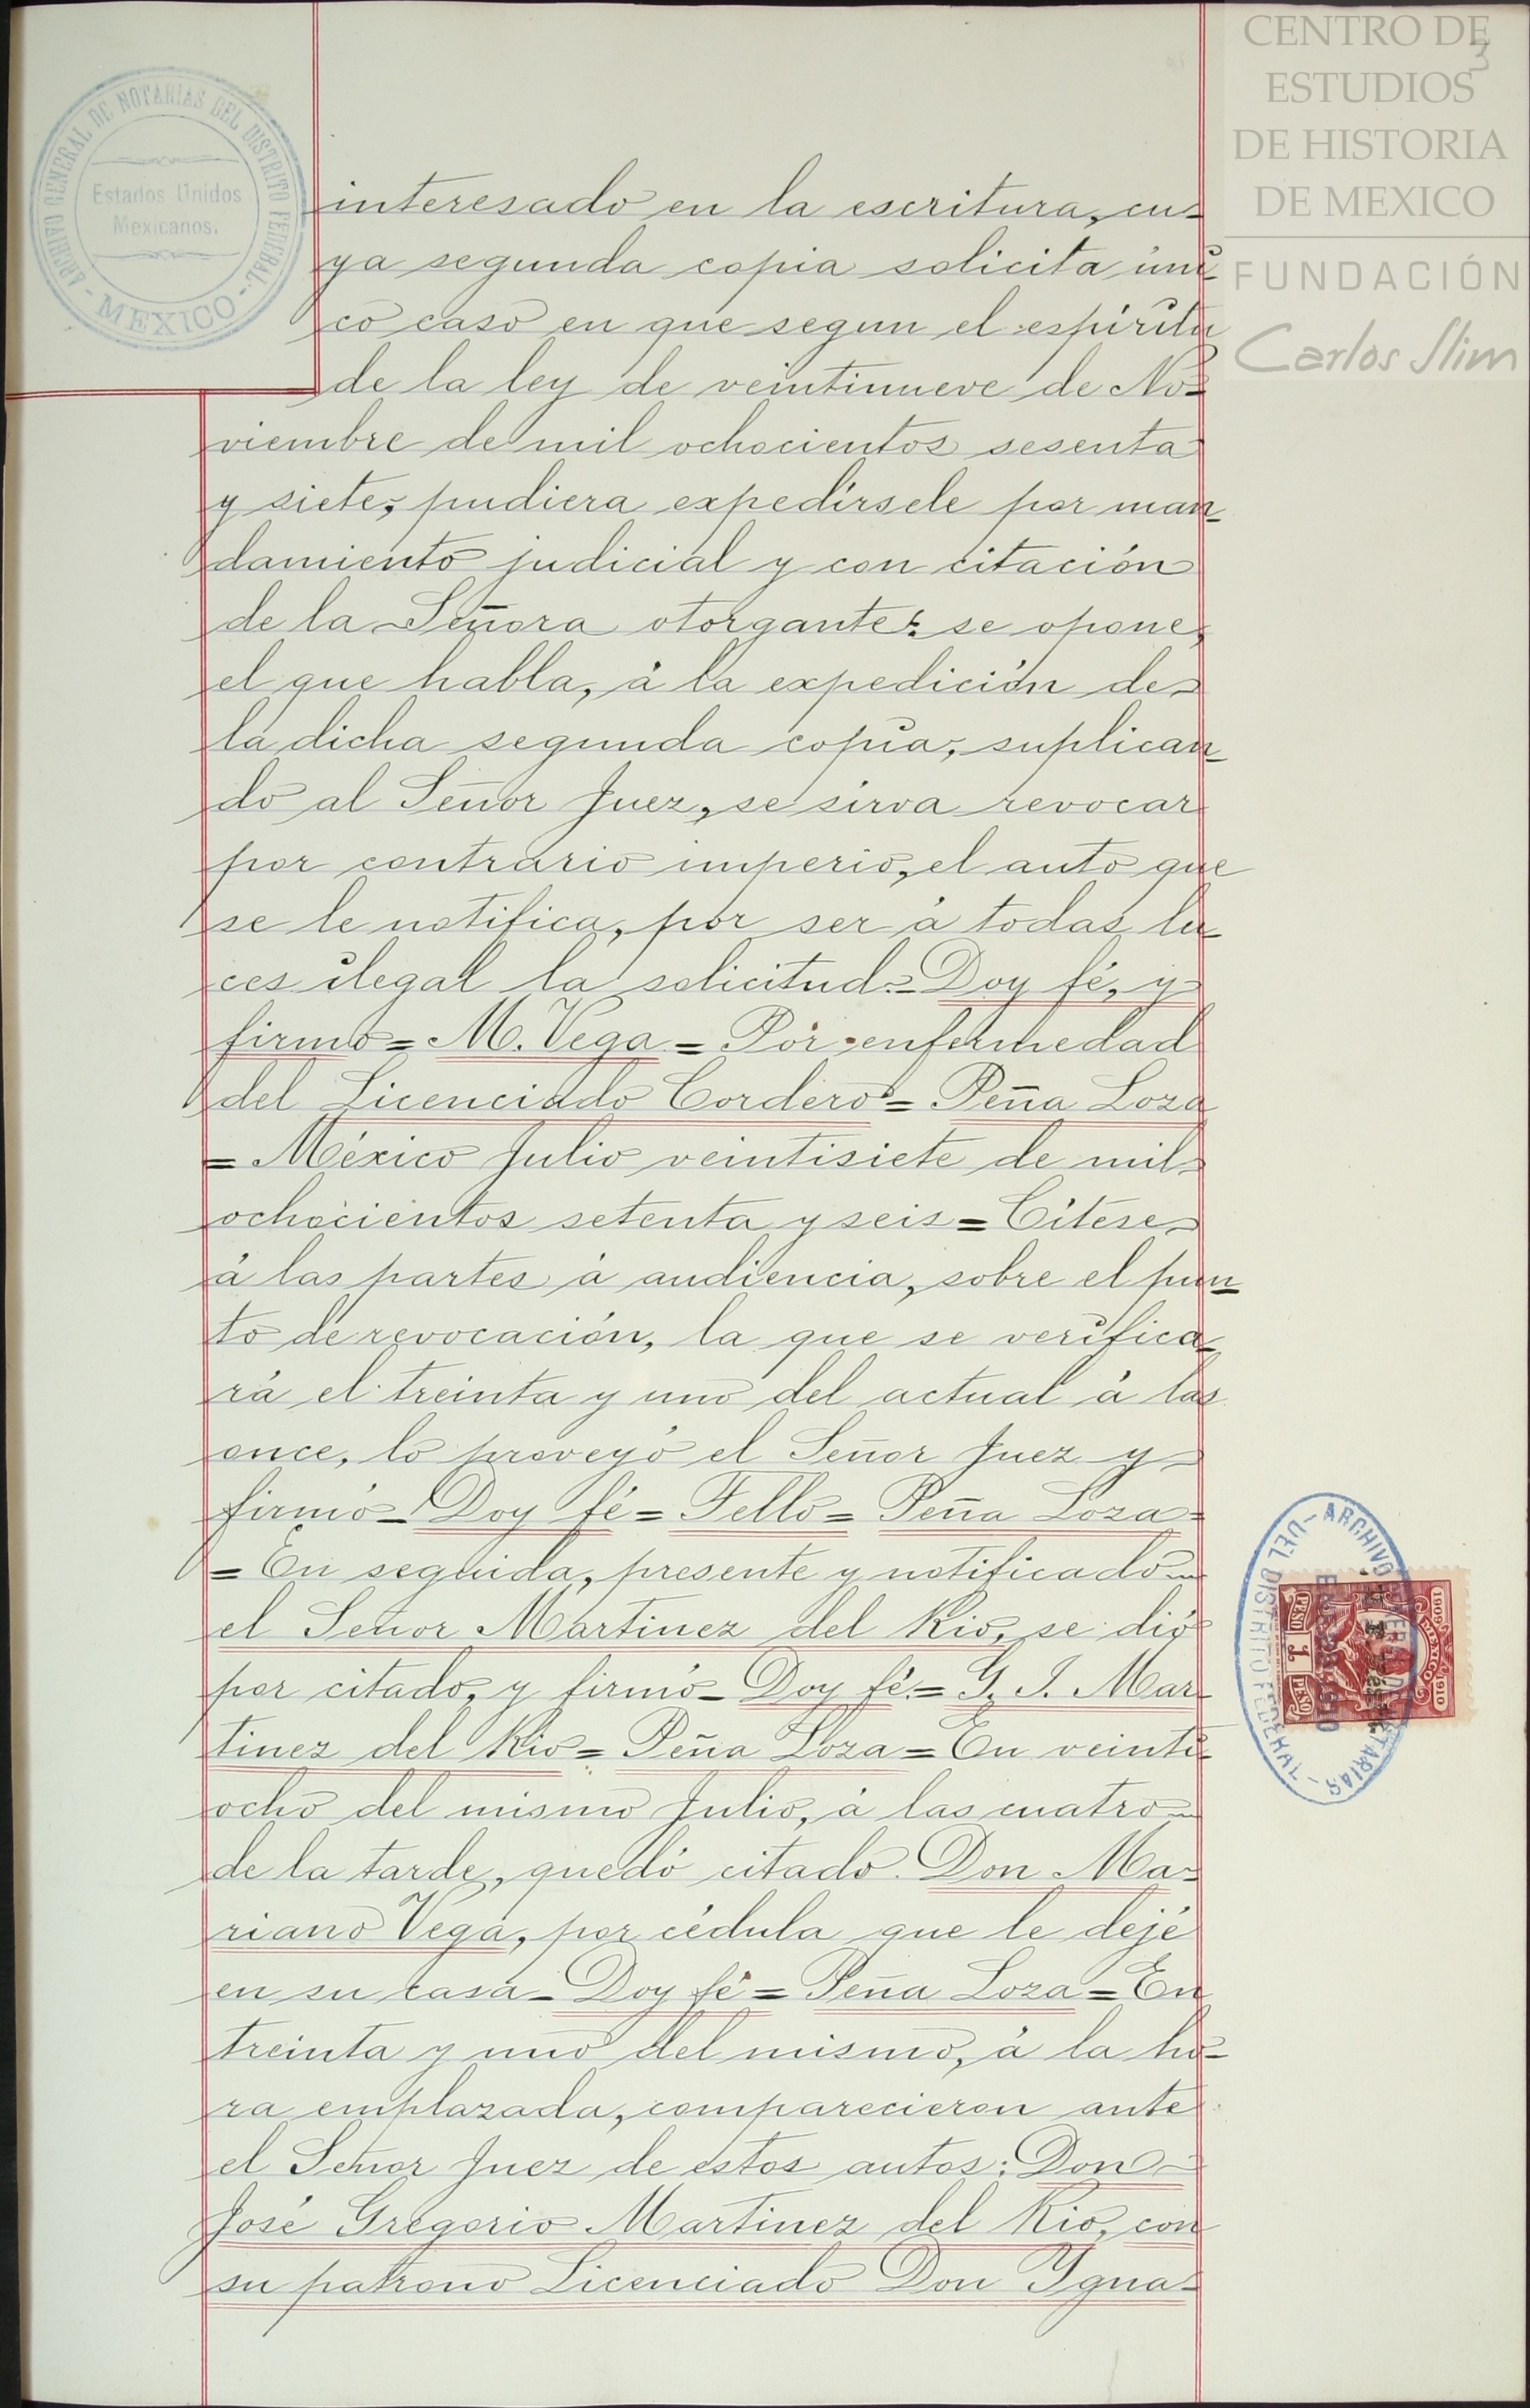 CENTRO DE
ESTUDIOS
DE HISTORIA
DE MEXICO
FUNDACIÓN
Carlos Slim
3
ARCHIVO GENERAL DE NOTARIAS DEL DISTRITO FEDERAL.
- MEXICO -
Estados Unidos
Mexicanos.
interesado en la escritura, cu-
ya segunda copia solicita úni
co caso en que segun el espíritu
de la ley de veintinueve de No-
viembre de mil ochocientos sesenta
y siete, pudiera expedírsele por man-
damiento judicial y con citación
de la Señora otorgante: se opone,
el que habla, á la expedición de
la dicha segunda copia, suplican-
do al Señor Juez, se sirva revocar
por contrario imperio, el auto que
se le notifica, por ser á todas lu-
ces ilegal la solicitud.= Doy fé, y
firmó = M. Vega = Por enfermedad
del Licenciado Cordero = Peña Loza
= México Julio veintisiete de mil
ochocientos setenta y seis = Cítese
á las partes á audiencia, sobre el pun-
to de revocación, la que se verifica-
rá el treinta y uno del actual á las
once, lo proveyó el Señor Juez y
firmó - Doy fé = Tello = Peña Loza =
= En seguida, presente y notificado
el Señor Martinez del Rio, se dió
por citado, y firmó - Doy fé. = G. I. Mar-
tinez del Rio = Peña Loza = En veinti-
ocho del mismo Julio, á las cuatro
de la tarde, quedó citado Don Ma-
riano Vega, por cédula que le dejé
en su casa - Doy fé = Peña Loza = En
treinta y uno del mismo, á la ho-
ra emplazada, comparecieron ante
el Señor Juez de estos autos: Don
José Gregorio Martinez del Rio, con
su patrono Licenciado Don Ygna-
- ARCHIVO GENERAL DE NOTARIAS -
DEL DISTRITO FEDERAL
1909 MEXICO 1910
PESO 1 PESO